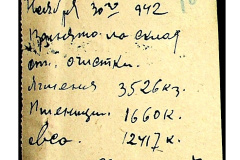 Ноября 30го 942
Принято на склад
от. очистки.
Ячменя 3526кг.
Пшеницы 1660к.
овса 12417 к.